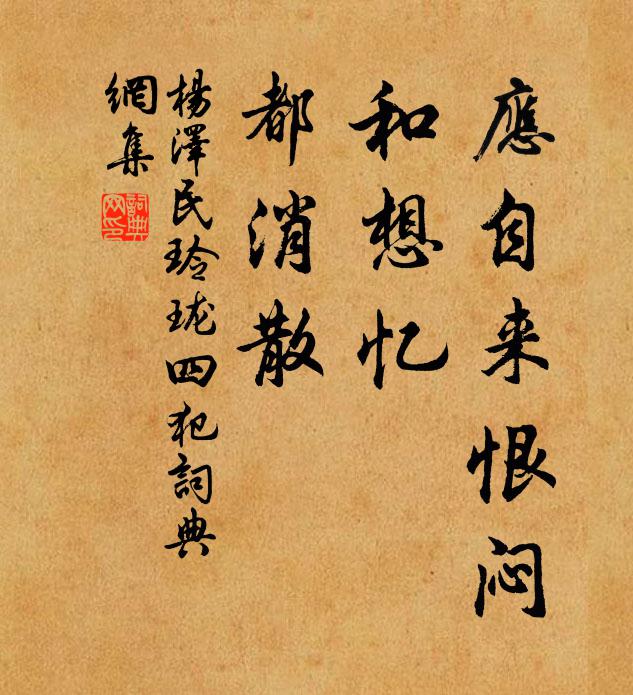 應自来恨闷
和想忆
都消散
楊澤民玲珑四犯詞典
網集
詞典
网印